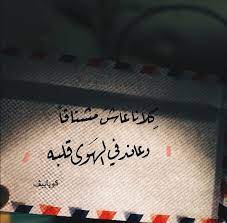 كِلانا عاش مشتاقاً
وعاند في الهوى قلبه